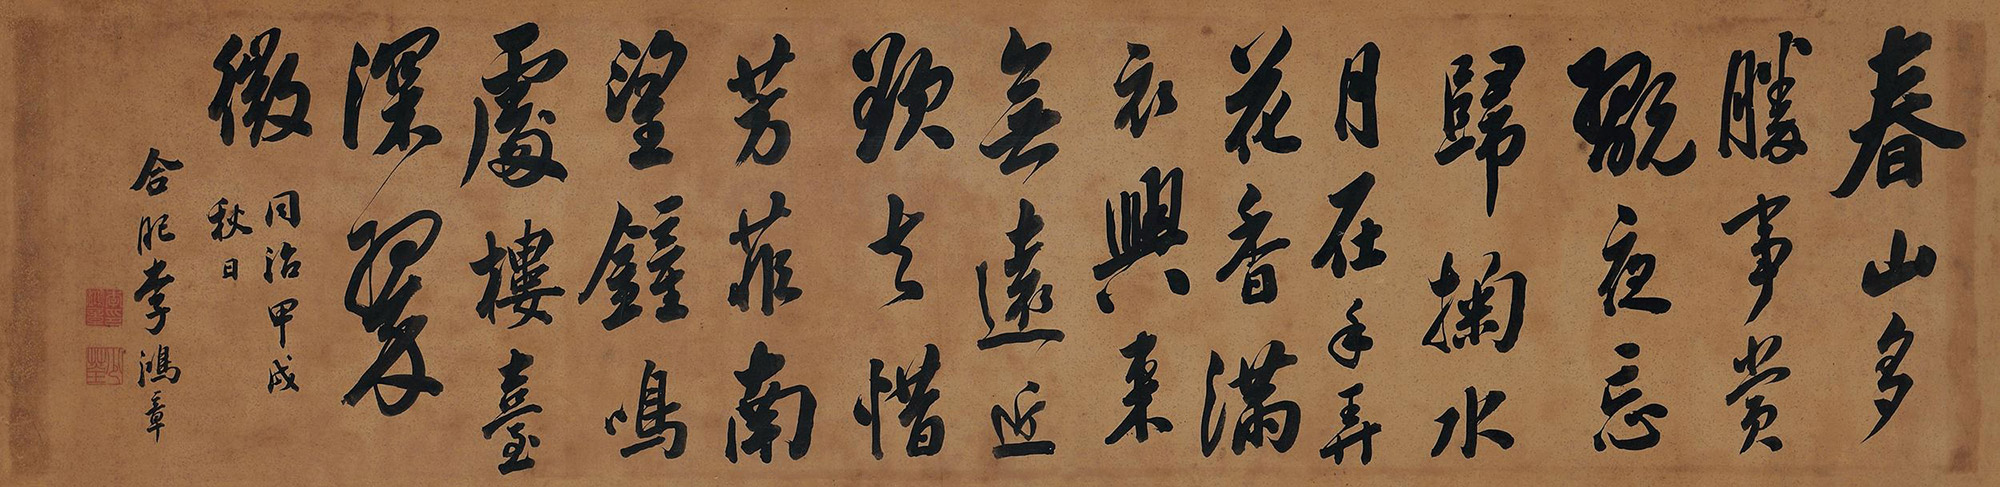 春山多
勝事賞
翫夜忘
歸掬水
月在手弄
花香滿
衣興來
無遠近
欲去惜
芳菲南
望鐘鳴
處樓臺
深翠
微
同治甲戌
秋日
合肥李鴻章